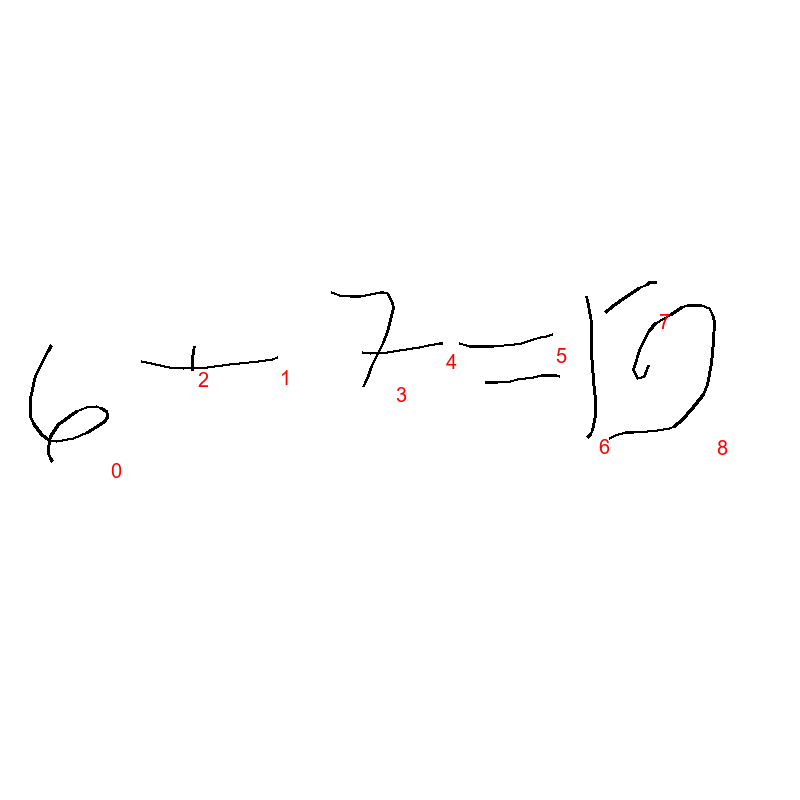 6 + 7 =
0 2 1 3 4 5 6 7 8